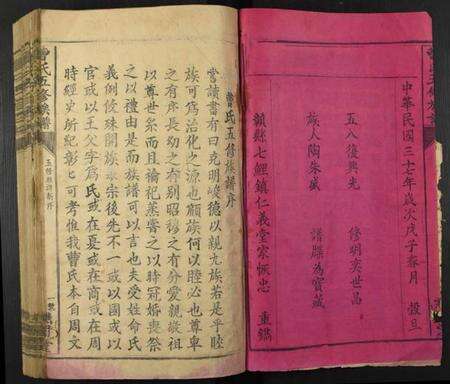 中華民國三十七年歲次戊子春月 穀旦
五八復興先 修明奕世昌
族人陶朱盛 譜牒為寶箴
贛縣七鯉鎮仁義堂宗恢忠 重鐫
曹氏五修族譜序
嘗讀書有曰克明峻德以親九族若是乎睦
族可為治化之源也顧族何以睦必也尊卑
之有序長幼之有別昭穆之有分愛親敬祖
以尊世系而且禴祀蒸嘗之以時冠婚喪祭
之以禮由是而族譜可以言也夫受姓命氏
義例攸殊開族承宗後先不一或以國或以
官或以王父字為氏或在夏或在商或在周
時經史所紀彰彰可考惟我曹氏本自周文
曹氏五修族譜
五修族譜序